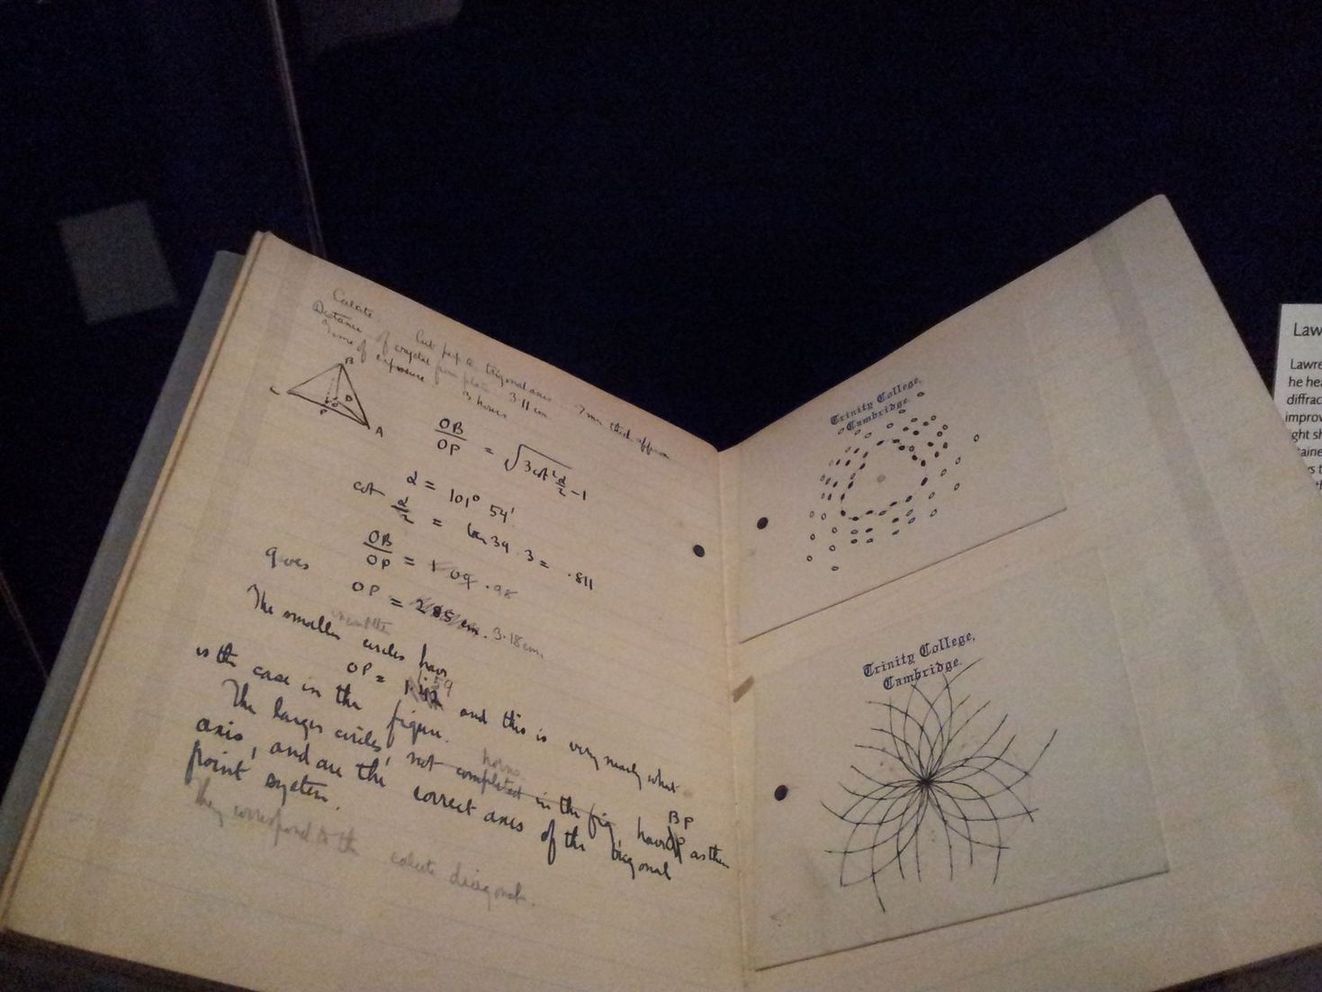 Calcite. Cut perp to trigonal axis. 2 mm thick approx
Distance of crystal from plate 3.11 cm
Time of exposure 3 hours
B
C
O
P
A
OB/OP = √3cot²α/2 -1
α = 101° 54'
cot α/2 = tan 39.3 = .811
gives OB/OP = 1.09 .98
OP = 2.85 cm. 3.18 cm.
The smaller circles have
OP = 1. 59 and this is very nearly what
is the case in the figure.
The larger circles, not completed in the fig, have BP as their
axis, and are the correct axes of the trigonal
point system.
They correspond to the calcite diagonal.
Trinity College,
Cambridge.
Trinity College,
Cambridge.
Law
Lawre
he hea
diffrac
improv
ight sh